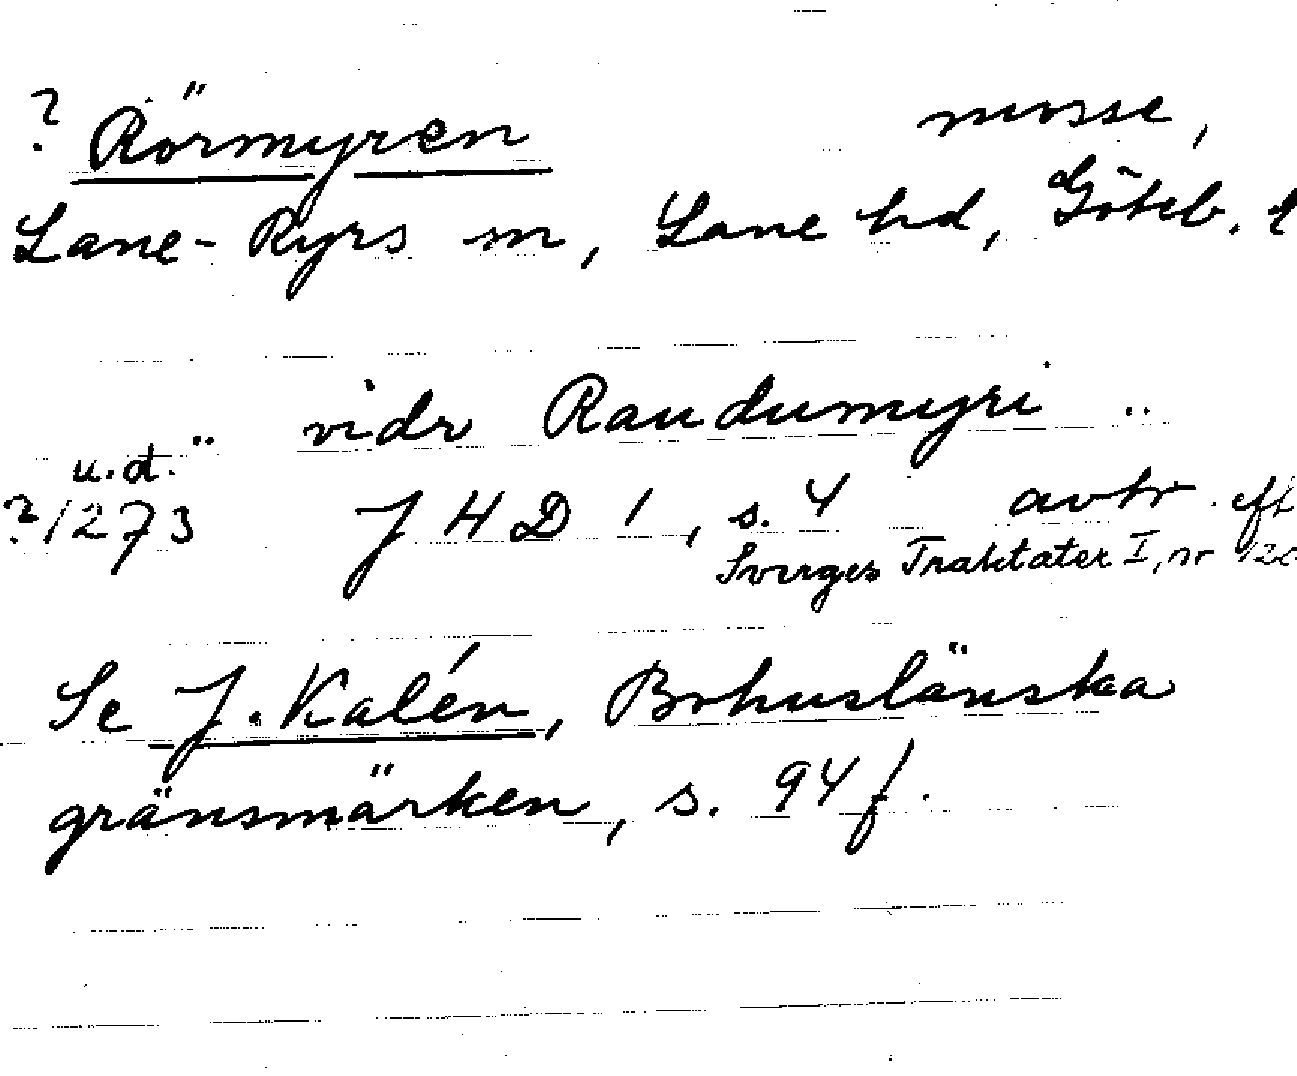 ? Rörmyren mosse,
Lane-Ryrs sn, Lane hd, Göteb. l
.. vidr Raudumyri ..
u.d.
?/273 JHD 1, s. 4 avtr. eft
Sveriges Traktater I, nr 120
Se J. Kalén, Bohuslänska
gränsmärken, s. 94 f.